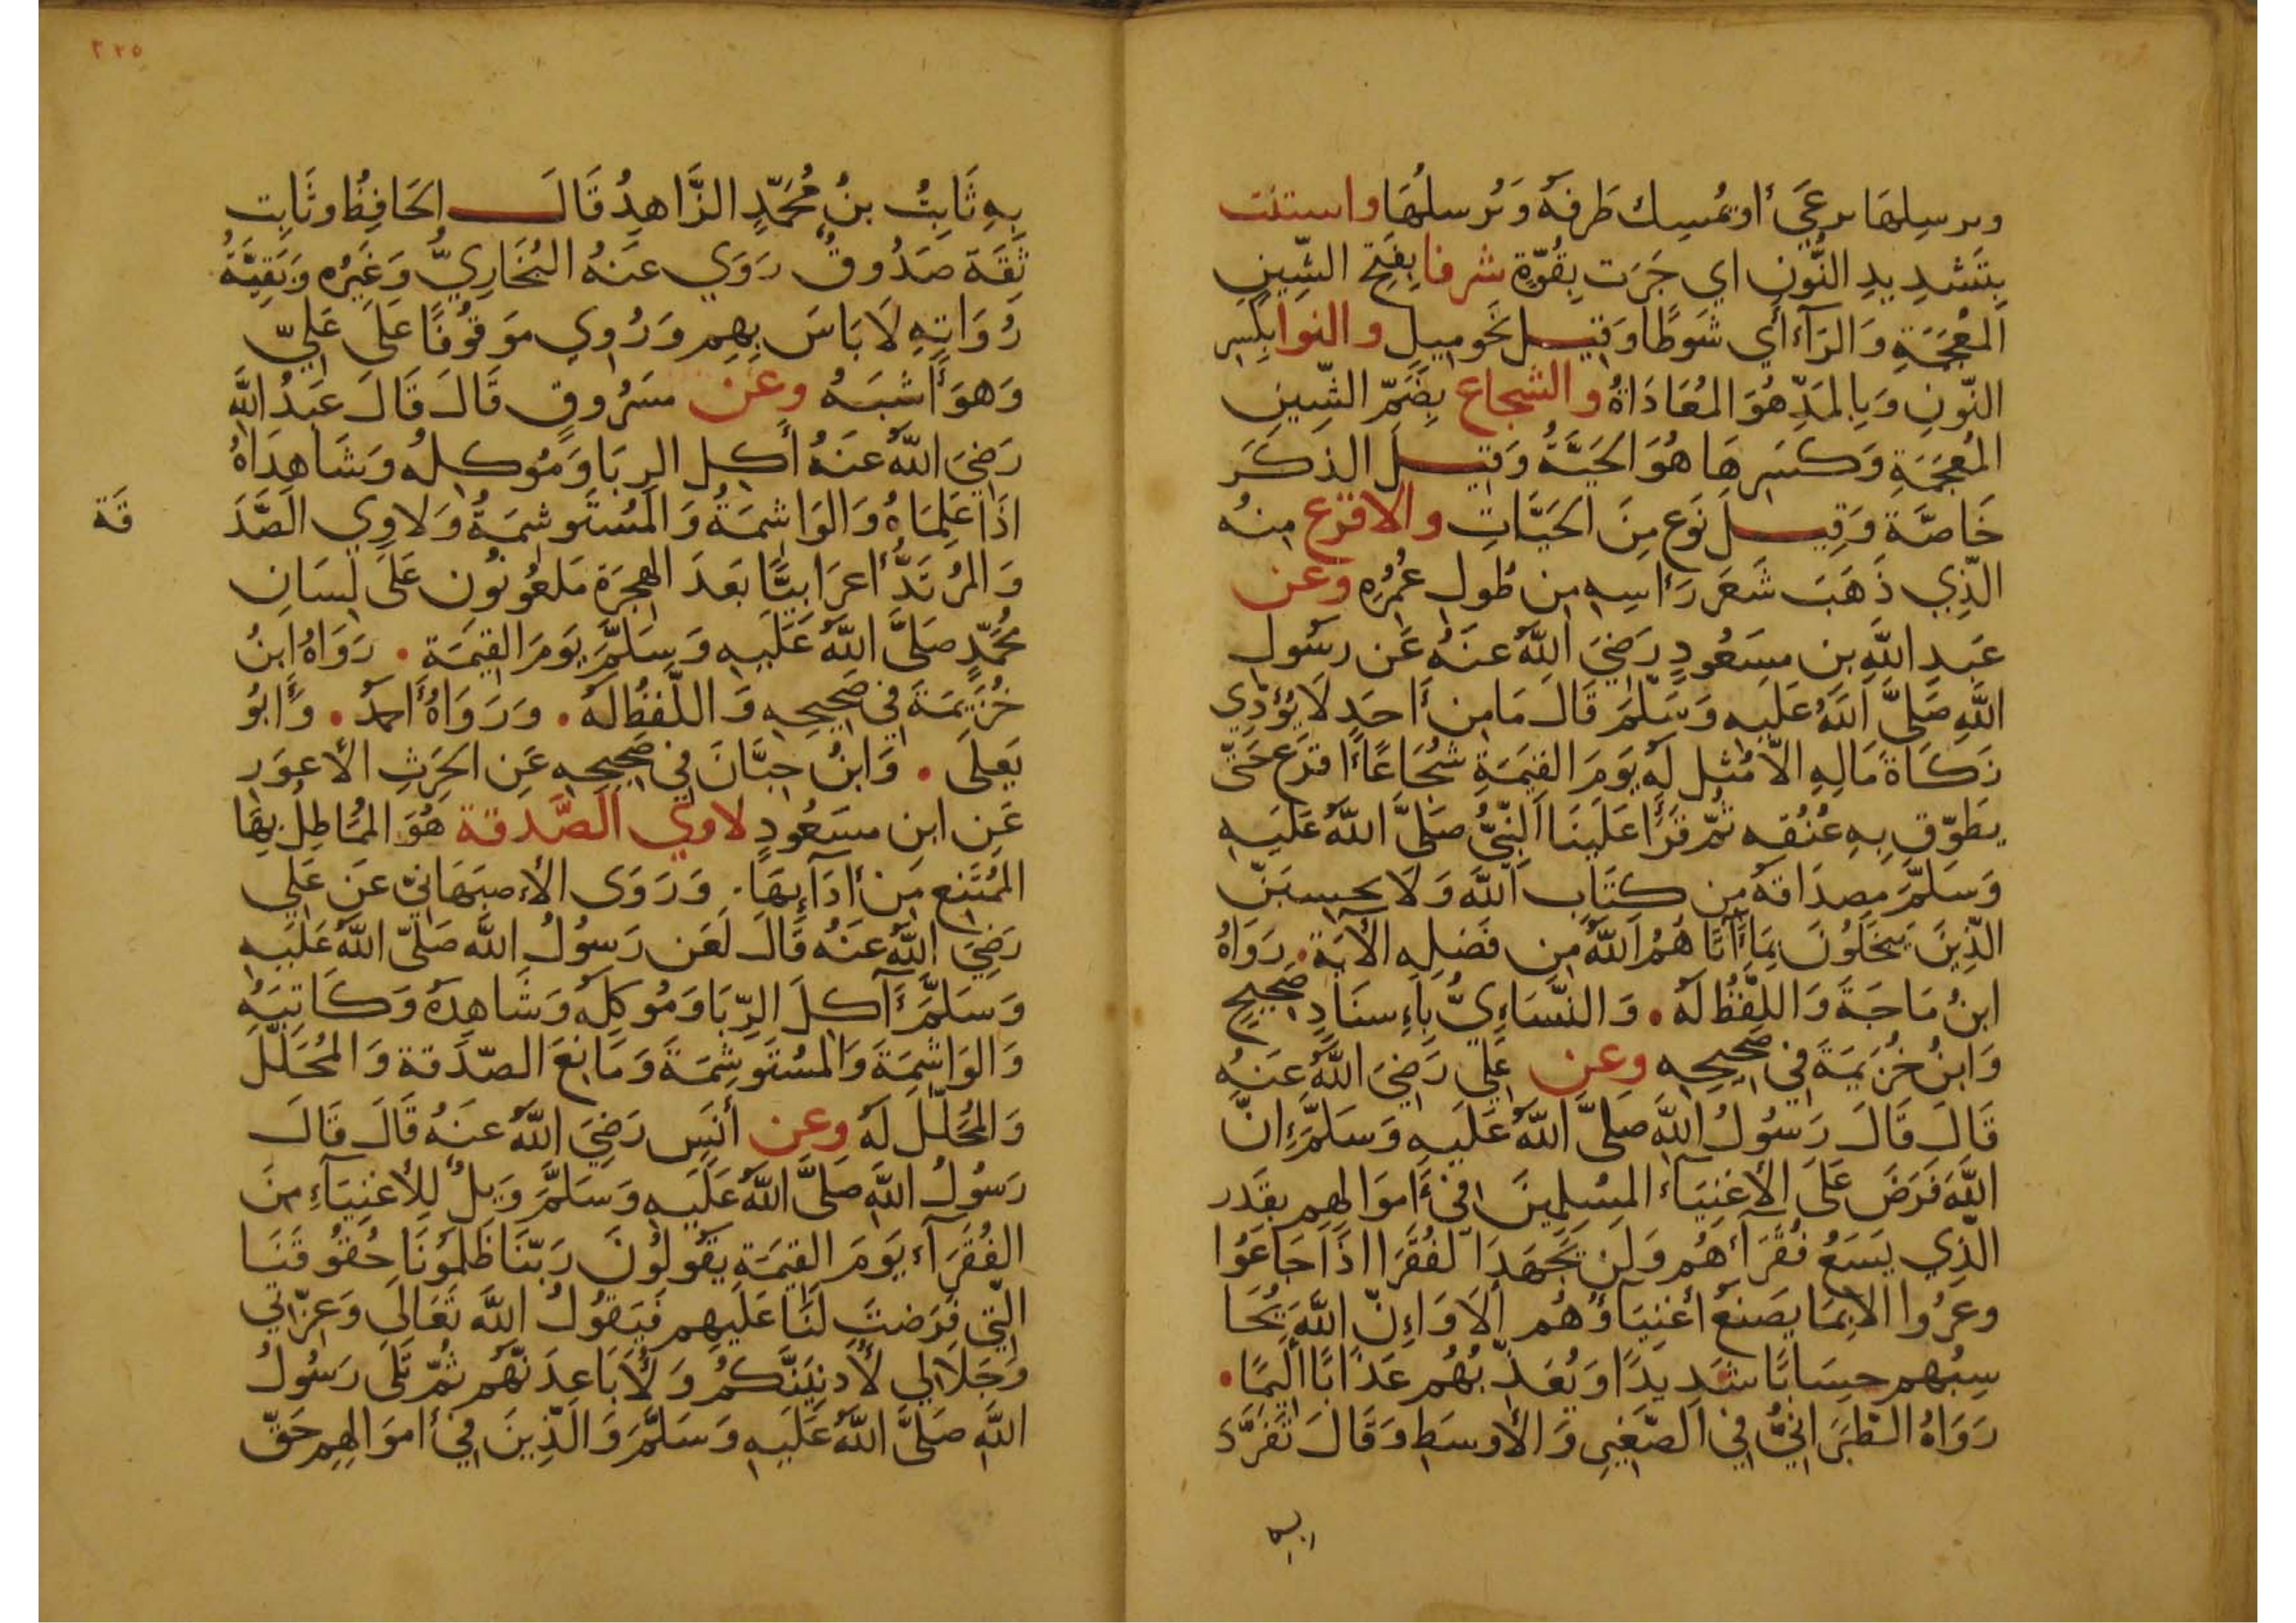 ويرسلها يرعى أو يمسك طرفه ويرسلها واستنت
بتشديد النون اي جرت بقوة شرفا بفتح الشين
المعجمة والراء أي شوطا وقيل نحو ميل والنوا بكسر
النون وبالمد هو المعاداة والشجاع بضم الشين
المعجمة وكسرها هو الحية وقيل الذكر
خاصة وقيل نوع من الحيات والاقرع منه
الذي ذهب شعر رأسه من طول عمره وعن
عبد الله بن مسعود رضي الله عنه عن رسول
الله صلى الله عليه وسلم قال ما من أحد لا يؤدي
زكاة ماله الا مثل له يوم القيمة شجاعا أقرع حتى
يطوق به عنقه ثم قرأ علينا النبي صلى الله عليه
وسلم مصداقه من كتاب الله ولا يحسبن
الذين يبخلون بما آتاهم الله من فضله الآية . رواه
ابن ماجة واللفظ له . والنساءي باسناد صحيح
وابن خزيمة في صحيحه وعن علي رضي الله عنه
قال قال رسول الله صلى الله عليه وسلم إن
الله فرض على الأغنياء المسلمين في أموالهم بقدر
الذي يسع فقرآءهم ولن تجهد الفقرا اذا جاعوا
وعروا الا بما يصنع أغنياؤهم ألا وإن الله يحا
سبهم حسابا شديدا ويعذبهم عذابا أليما .
رواه الطبراني في الصغير والأوسط وقال تفرد
به
به ثابت بن محمد الزاهد قال الحافظ وثابت
ثقة صدوق روي عنه البخاري وغيره وبقية
رواته لا باس بهم وروي موقوفا على علي
وهو أشبه وعن مسروق قال قال عبد الله
رضي الله عنه أكل الربا وموكله وشاهداه
اذا علماه والواشمة والمستوشمة ولاوي الصد
قة
والمرتد أعرابيا بعد الهجرة ملعونون على لسان
محمد صلى الله عليه وسلم يوم القيمة . رواه ابن
خزيمة في صحيحه واللفظ له . ورواه أحمد . وأبو
يعلى . وابن حبان في صحيحه عن الحرث الأعور
عن ابن مسعود لاوي الصدقة هو المماطل بها
الممتنع من أدآئها . وروى الأصبهاني عن علي
رضي الله عنه قال لعن رسول الله صلى الله عليه
وسلم آكل الربا وموكله وشاهده وكاتبه
والواشمة والمستوشمة ومانع الصدقة والمحلل
والمحلل له وعن أنس رضي الله عنه قال قال
رسول الله صلى الله عليه وسلم ويل للأغنيآء من
الفقرآء يوم القيمة يقولون ربنا ظلمونا حقوقنا
التي فرضت لنا عليهم فيقول الله تعالى وعزتي
وجلالي لأدنينكم ولأباعدنهم ثم تلى رسول
الله صلى الله عليه وسلم والذين في أموالهم حق
٢٢٥